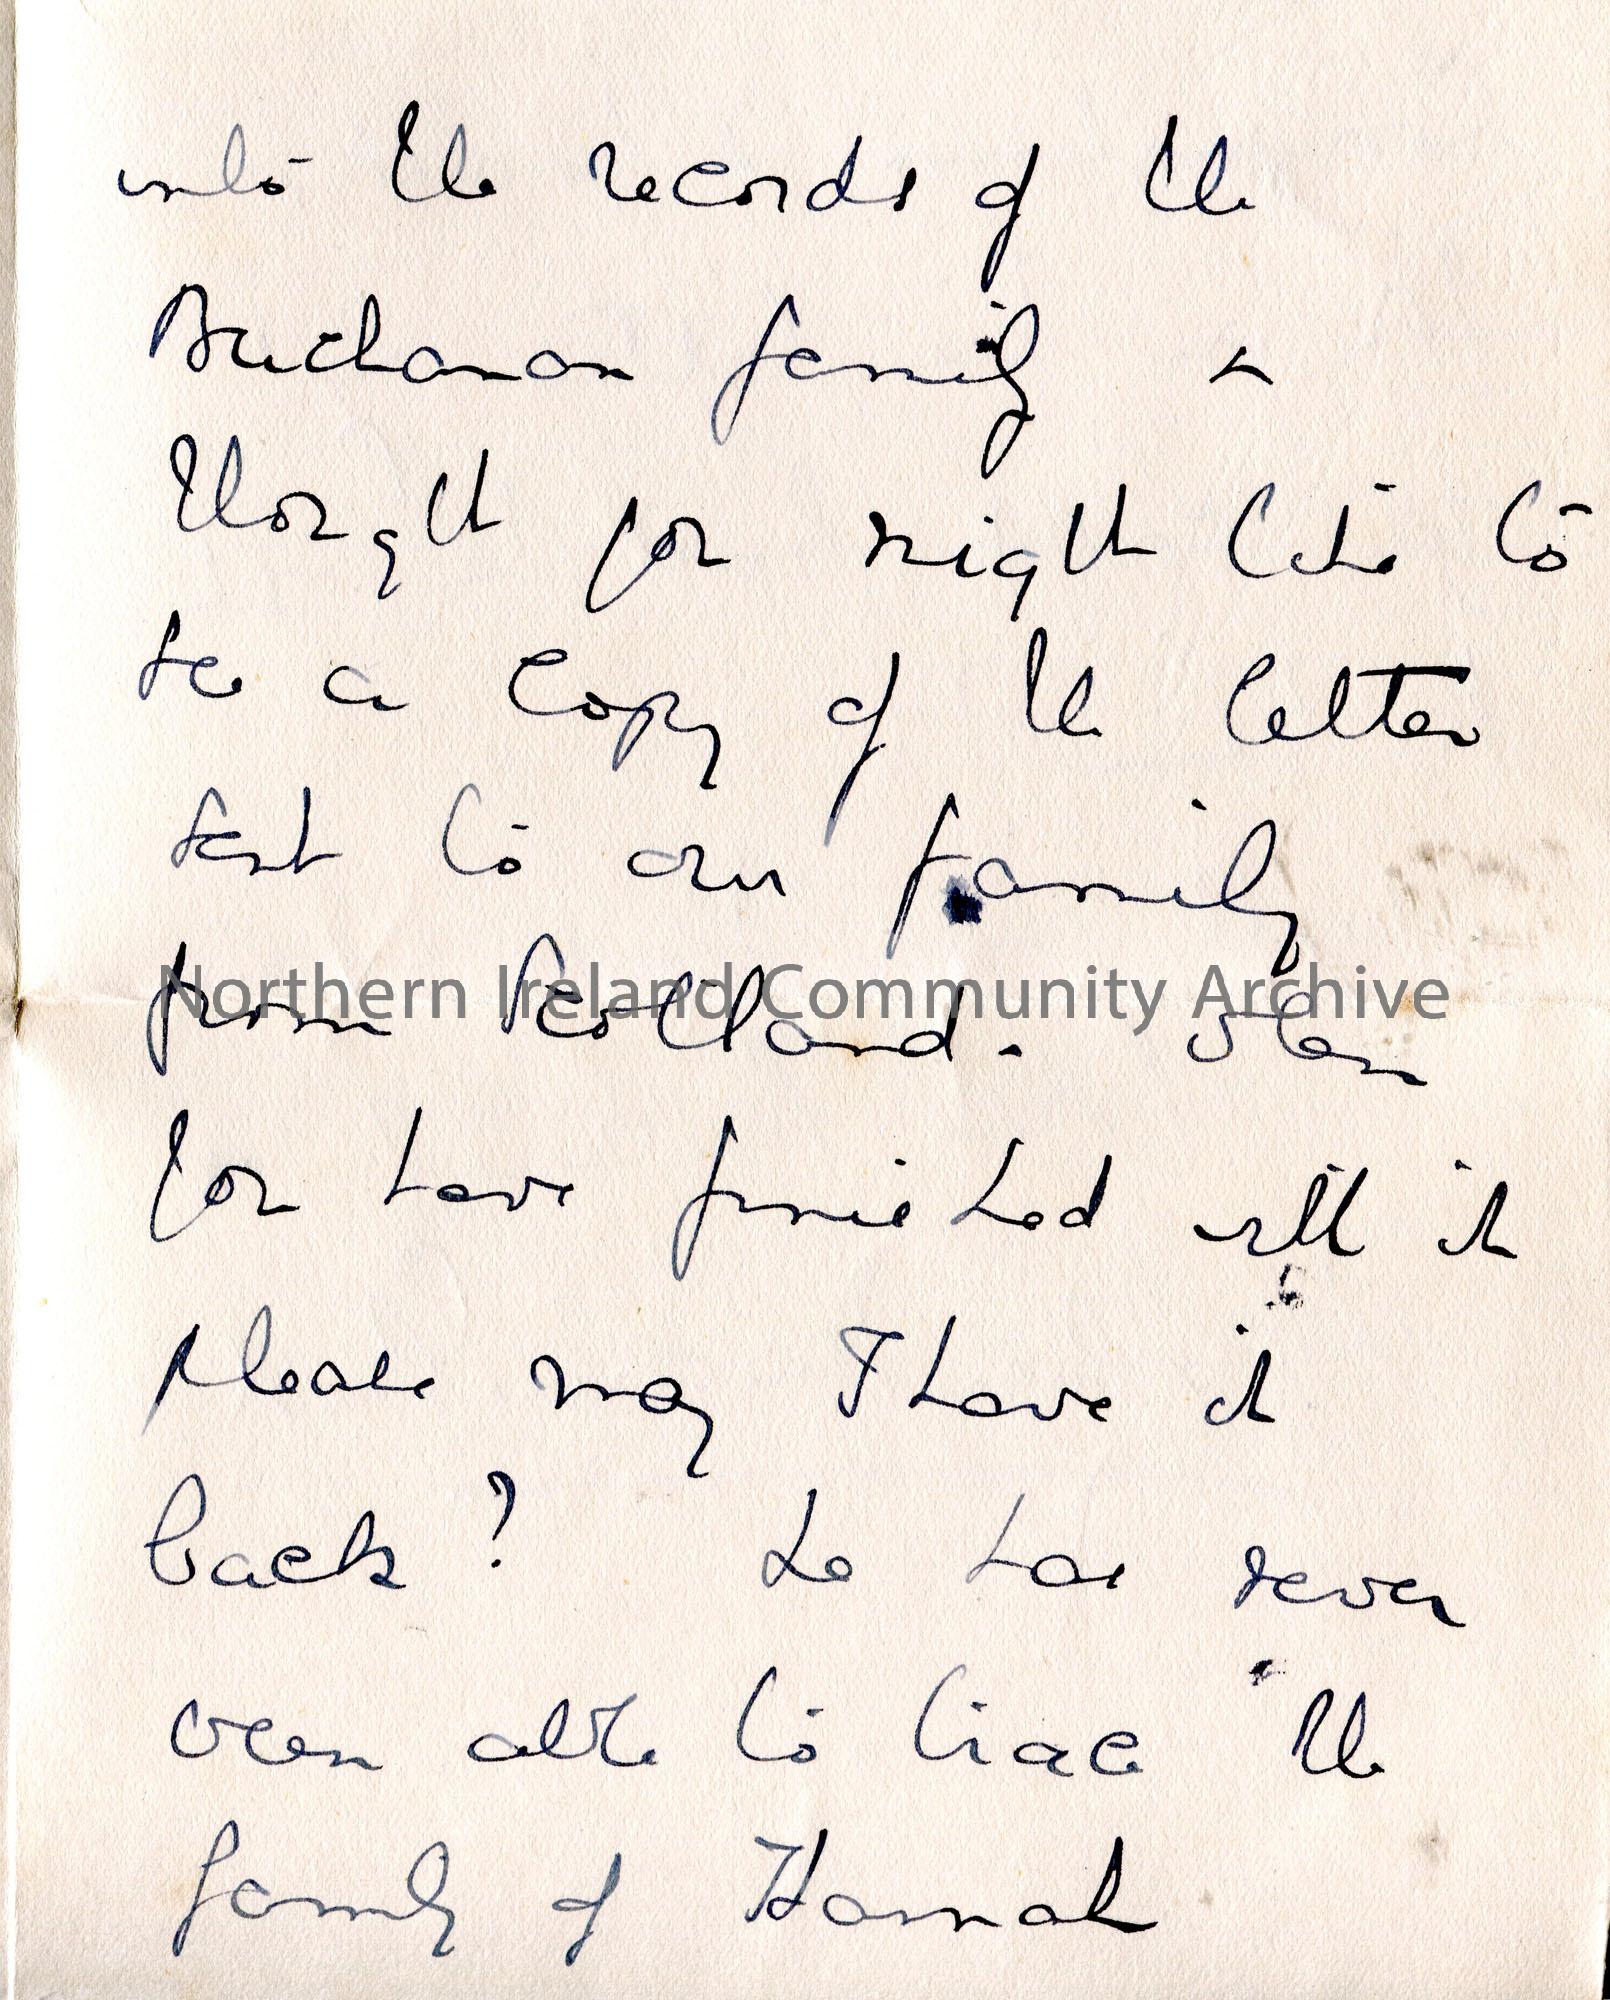 into the records of the
Buchanan family &
thought you might like to
see a copy of the letter
sent to our family
from Scotland. When
Northern Ireland Community Archive
you have finished with it
please may I have it
back? He has never
been able to trace the
family of Hannah